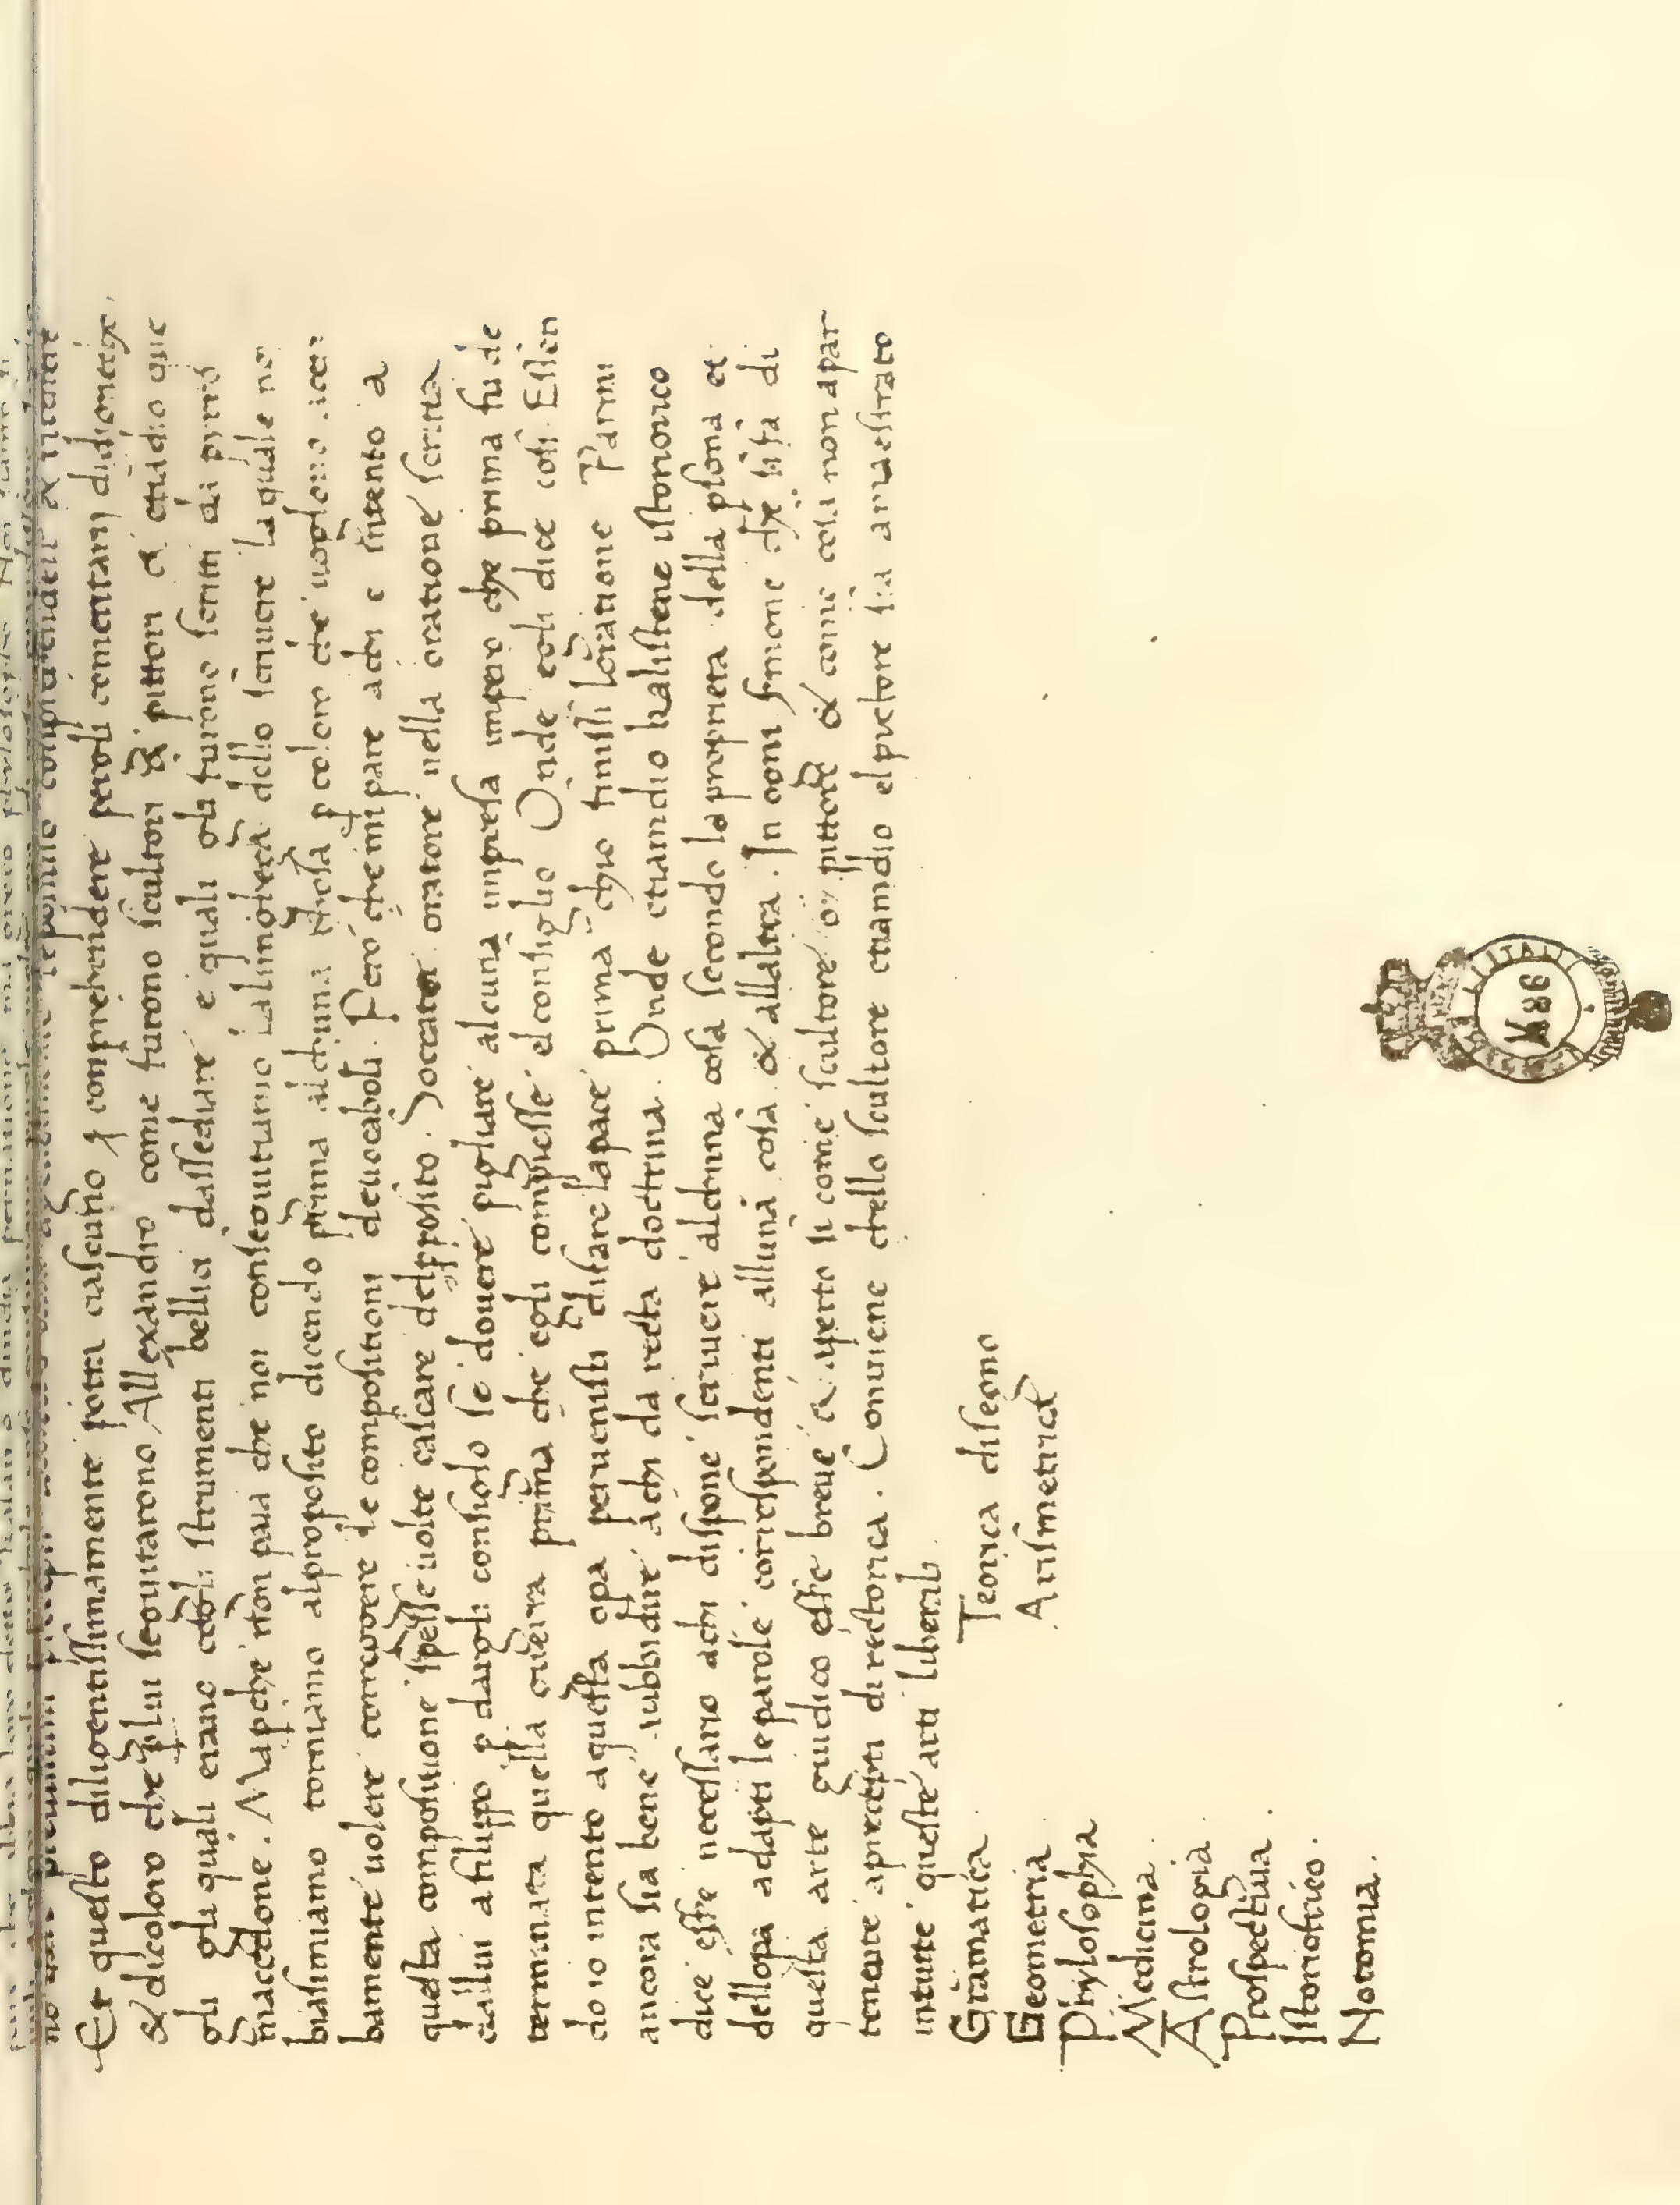 Et questo diligentissimamente potra ciascuno comprehendere pegli comentarij
& di coloro che lui seguitarono Allexandro come furono scultori & pittori & etiadio que
gli gli quali erano cogli strumenti bellici dassediare e quali gia furono scritti da pyrro
macedone. Ma pche non paia che noi conseguitiamo la lungheza dello scriuere la quale no
biasimiamo torniamo al proposito dicendo prima alchuna chosa p coloro che uogliono
bamente uolere correggere le compositioni de uocaboli. Pero che mi pare achi e intento a
questa compositione spesse uolte cascare del pposito. Socrate oratore nella oratione scritta
allui a filippo p dargli consiglo se douere pigliare alcuna impresa impero che prima fu de
terminata quella guerra prima che egli compiesse el consiglio Onde egli dice cosi Essen
do io intento a questa opa peruenisti di fare la pace prima chio finissi loratione Parmi
ancora sia bene ubbidire achi da recta doctrina. Onde etiamdio kalistene istoriorico
dice essere necessario achi dispone scriuere alchuna cosa secondo la proprieta della psona et
dellopa adapti le parole corrispondenti alluna cosa & allaltra. In ogni sermone che si fa di
questa arte giudico essere breue & aperto si come scultore o pittore & come cosa non apar
tenente a precepti di rectorica. Conuiene chello scultore etiamdio el pictore sia amaestrato
in tutte queste arti liberali.
Gramatica. Teorica disegno
Geometria Arismetrica
Phylosophia
Medicina.
Astrologia
Prospectiua.
Istoriofrico.
Notomia.